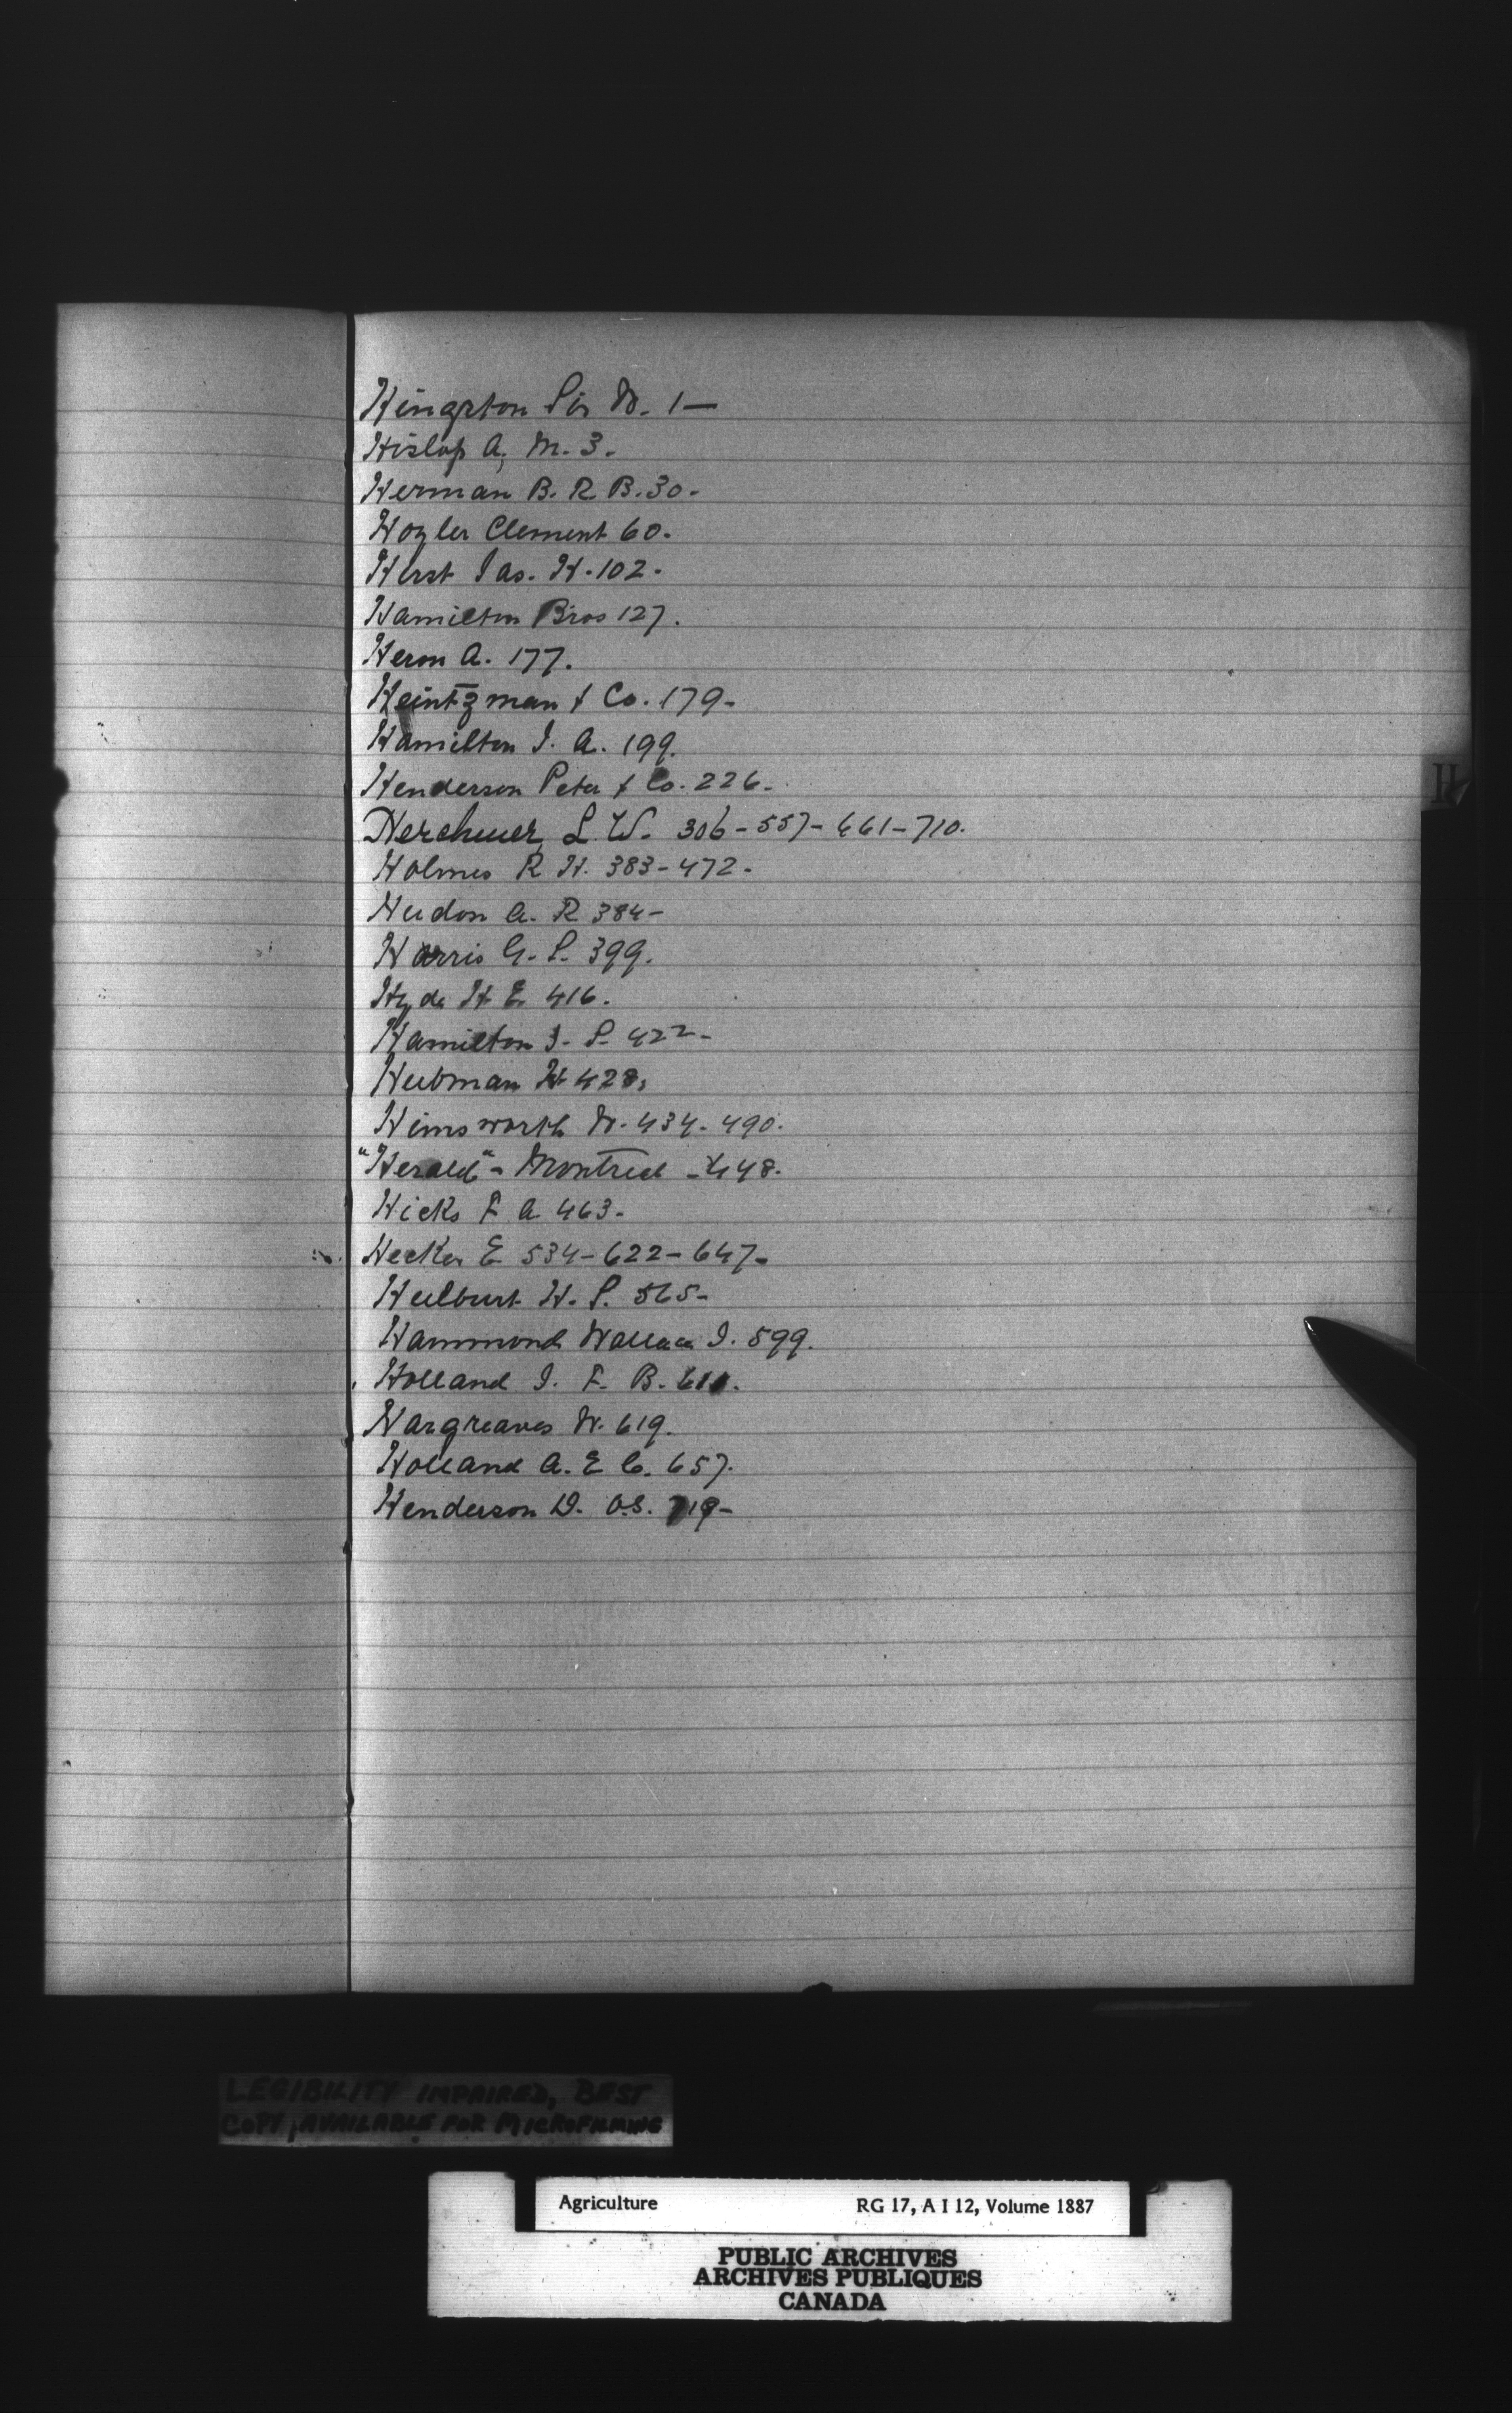 Hingston Sir W. 1—
Hislop A. M. 3.
Herman B. R. B. 30.
Hozler Clement 60.
Hirst Jas. H. 102.
Hamilton Bros 127.
Heron A. 177.
Heintzman & Co. 179-
Hamilton J. A. 199.
Henderson Peter & Co. 226-
Herchmer, L. W. 306-557-661-710.
Holmes R H. 383-472-
Hudon A. R 384-
Harris G. S. 399.
Hyde H E 416.
Hamilton J. S. 422-
Hubman H 428.
Himsworth W. 434-490.
"Herald" - Montreal - 448.
Hicks F A 463-
Hecker E 534-622-647-
Hulburt H. S. 565-
Hammond Wallace J. 599.
Holland J. F. B. 611.
Hargreaves W. 619.
Holland A. E C. 657.
Henderson D. O.S. 719-
H
LEGIBILITY IMPAIRED, BEST
COPY AVAILABLE FOR MICROFILMING
Agriculture RG 17, A I 12, Volume 1887
PUBLIC ARCHIVES
ARCHIVES PUBLIQUES
CANADA